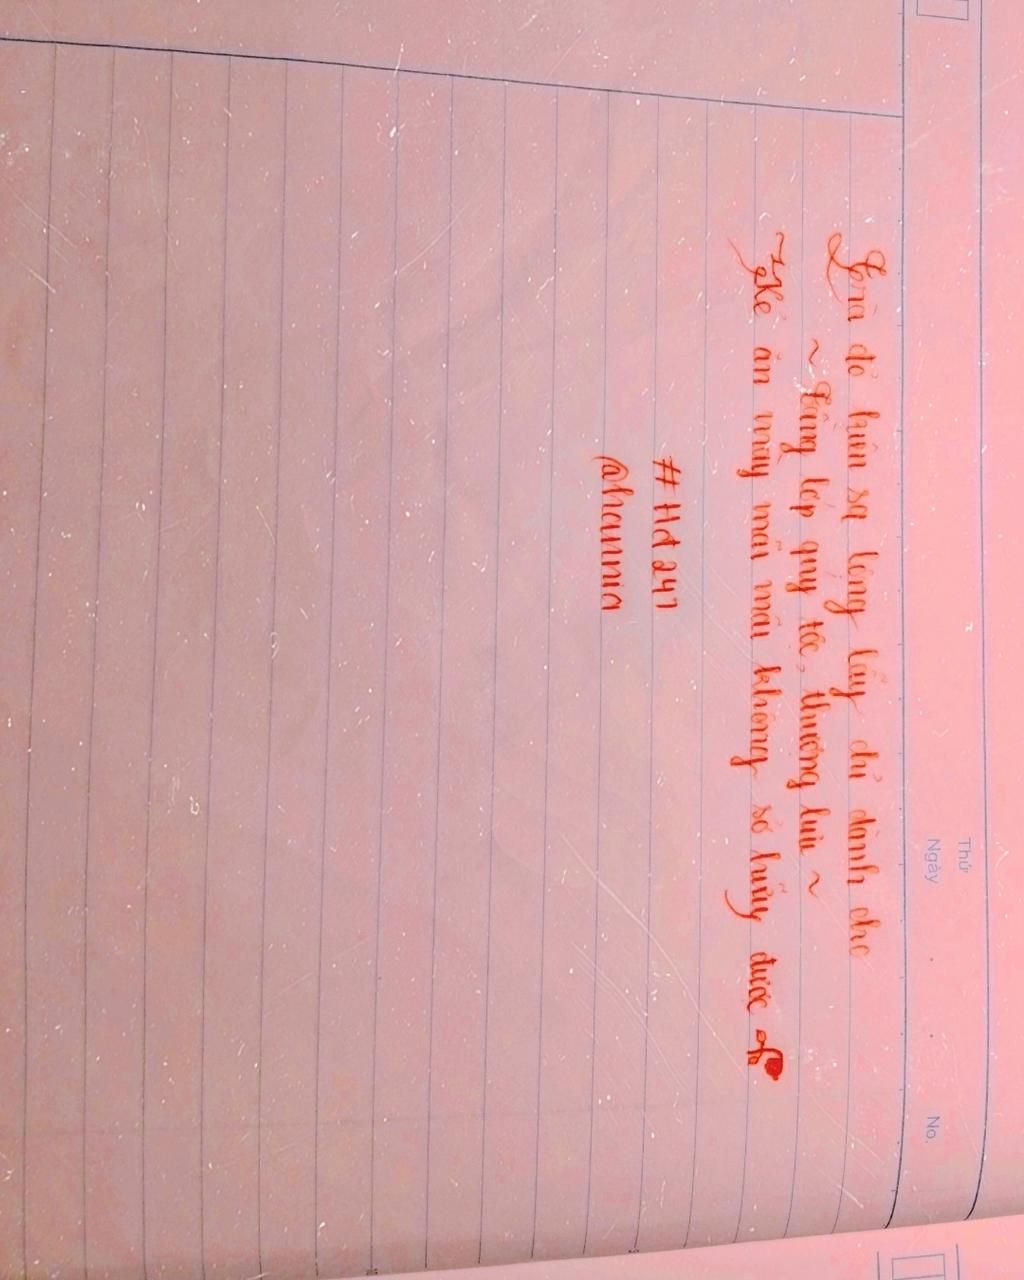 Thứ
Ngày . . No.
Trà đỏ kiêu sa lộng lẫy chỉ dành cho
~ tầng lớp quý tộc, thượng lưu ~
~ Kẻ ăn mày mãi mãi không sở hữu được
# Hd 247
@hannia